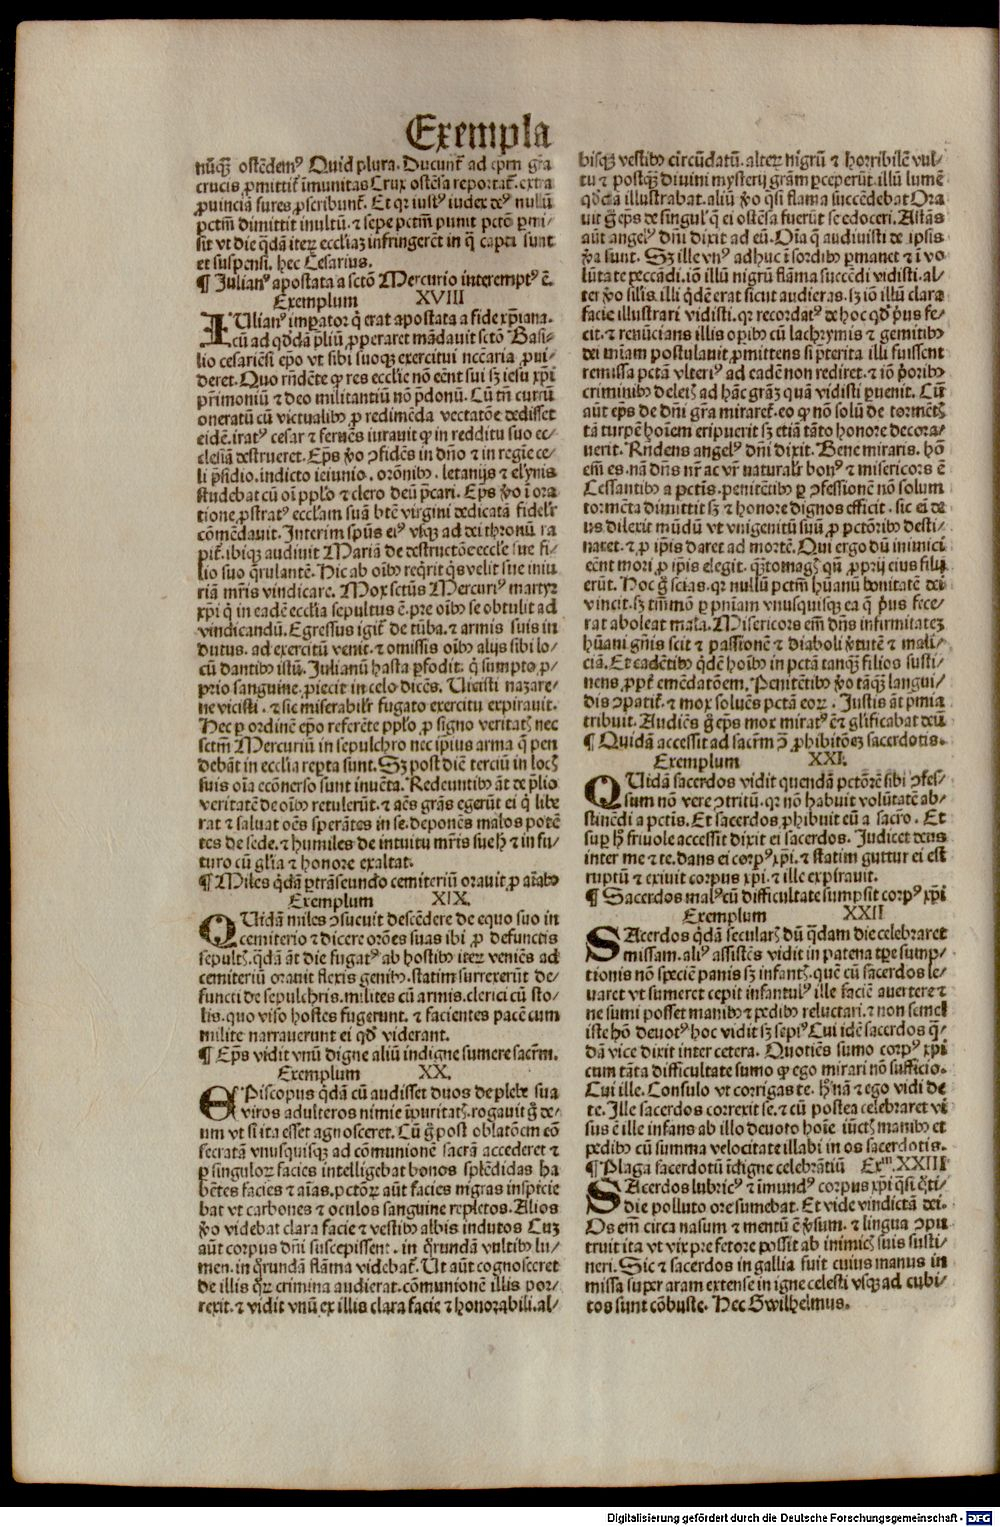 Exempla
nūqꝫ ostēdemꝰ Quid plura. Ducunt̄ ad epm̄ gr̄a
crucis ꝓmittit̄ īmunitas Crux ostēsa reportat̄. extra
ꝓuinciā fures ꝓscribunt̄. Et qr iustꝰ iudex deꝰ nullū
pctm̄ dimittit inultū. ⁊ sepe pctm̄ punit pctō ꝑmi⸗
sit vt die q̄dā iteꝝ eccl̄iaꝫ infringerēt in q̄ capti sunt
et suspensi. hec Cesarius.
¶ Julianꝰ apostata a sctō Mercurio interemptꝰ ē.
Exemplum XVIII
IUlianꝰ imꝑator q̄ erat apostata a fide xp̄iana.
cū ad qd̄dā p̄liū ꝓperaret mādauit sctō Basi⸗
lio cesariēsi ep̄o vt sibi suoqꝫ exercitui nēcāria ꝓui⸗
deret. Quo rn̄dēte ꝙ res eccl̄ie nō eēnt sui sꝫ iesu xp̄i
p̄rimoniū ⁊ deo militantiū nō p̄donū. Cū tn̄ currū
oneratū cū victualibꝰ ꝓ redimēda vectatōe dedisset
eidē. iratꝰ cesar ⁊ feruēs iurauit ꝙ in redditu suo ec⸗
clesiā destrueret. Ep̄s v̄o ꝯfidēs in dn̄o ⁊ in regīe ce⸗
li p̄sidio. indicto ieiunio. orōnibꝰ. letanijs ⁊ elynis
studebat cū oī pplo ⁊ clero deū p̄cari. Ep̄s v̄o ī ora
tione ꝓstratꝰ eccl̄iam suā btē virgini dedicatā fidelr̄
cōmēdauit. Interim spūs eiꝰ vsqꝫ ad dei thronū ra
pit̄. ibiqꝫ audiuit Mariā de destructōe eccl̄e sue fi⸗
lio suo q̄rulantē. Hic ab oībꝰ req̄rit q̄s velit sue iniu
riā mr̄is vindicare. Mox sctūs Mercuriꝰ martyr
xp̄i q̄ in eadē eccl̄ia sepultus ē. pre oībꝰ se obtulit ad
vindicandū. Egressus igit̄ de tūba. ⁊ armis suis in
dutus. ad exercitū venit. ⁊ omissis oībꝰ alijs sibi lo⸗
cū dantibꝰ istū. Julianū hasta ꝑfodit. q̄ sumpto ꝓ⸗
prio sanguine ꝓiecit in celo dicēs. Uicisti nazare⸗
ne vicisti. ⁊ sic miserabilr̄ fugato exercitu expirauit.
Hec ꝑ ordinē ep̄o referēte pplo ꝓ signo veritatꝭ nec
sctm̄ Mercuriū in sepulchro nec ip̄ius arma q̄ pen
debāt in eccl̄ia reꝑta sunt. Sꝫ post diē terciū in locꝭ
suis oīa ecōnerso sunt inuēta. Redeuntibꝰ āt de p̄lio
veritatē de oībꝰ retulerūt. ⁊ aēs grās egerūt ei q̄ libe
rat ⁊ saluat oēs sperātes in se. deponēs malos potē
tes de sede. ⁊ humiles de intuitu mr̄is sueꝭ ⁊ in fu⸗
turo cū gl̄ia ⁊ honore exaltat.
¶ Miles q̄dā ꝑtrāseundo cemiteriū orauit ꝓ aīabꝰ
Exemplum XIX.
QUidā miles ꝯsueuit descēdere de equo suo in
cemiterio ⁊ dicere orōes suas ibi ꝓ defunctis
sepultꝭ. q̄dā āt die fugatꝰ ab hostibꝰ iteꝝ veniēs ad
cemiteriū orauit flexis genibꝰ. statim surrexerūt de⸗
functi de sepulchris. milites cū armis. clerici cū sto⸗
lis. quo viso hostes fugerunt. ⁊ facientes pacē cum
milite narrauerunt ei qd̄ viderant.
¶ Ep̄s vidit vnū digne aliū indigne sumere sacrm̄.
Exemplum XX.
EPiscopus q̄dā cū audisset duos de plebe sua
viros adulteros nimie īpuritatꝭ. rogauit ḡ de⸗
um vt si ita esset agnosceret. Cū ḡ post oblatōem cō
secratā vnusquisqꝫ ad cōmunionē sacrā accederet ⁊
ꝑ singuloꝝ facies intelligebat bonos splēdidas ha
bētes facies ⁊ aīas. pctōꝝ aūt facies nigras inspicie
bat vt carbones ⁊ oculos sanguine repletos. Alios
v̄o videbat clara facie ⁊ vestibꝰ albis indutos Cuꝫ
aūt corpus dn̄i suscepissent. in q̄rundā vultibꝰ lu⸗
men. in q̄rundā flāma videbat̄. Ut aūt cognosceret
de illis q̄ꝝ crimina audierat. cōmunionē illis por⸗
rexit. ⁊ vidit vnū ex illis clara facie ⁊ honorabili. al⸗
bisqꝫ vestibꝰ circūdatū. alteꝝ nigrū ⁊ horribilē vul⸗
tu ⁊ postqꝫ diuini mysterij grām ꝑceperūt. illū lumē
qd̄dā illustrabat. aliū v̄o q̄si flama succēdebat Ora
uit ḡ ep̄s de singul' q̄ ei ostēsa fuerūt se edoceri. Astās
aūt angelꝰ dn̄i dixit ad eū. Oīa q̄ audiuisti de ipsis
v̄a sunt. Sꝫ ille vnꝰ adhuc ī sordibꝰ ꝑmanet ⁊ ī vo
lūtate peccādi. iō illū nigrū flāma succēdi vidisti. al⸗
ter v̄o silis. illi q̄dē erat sicut audieras. sꝫ iō illū clara
facie illustrari vidisti. qr recordatꝰ de hoc qd̄ p̄us fe⸗
cit. ⁊ renūcians illis opibꝰ cū lachrymis ⁊ gemitibꝰ
dei mīam postulauit ꝓmittens si p̄terita illi fuissent
remissa pctā vlteriꝰ ad eadē non rediret. ⁊ iō p̄oribꝰ
criminibꝰ deletꝭ ad hāc grāꝫ quā vidisti ꝑuenit. Cū
aūt ep̄s de dn̄i gr̄a miraret̄. eo ꝙ nō solū de tormētꝭ
tā turpē hoīem eripuerit sꝫ etiā tāto honore decora⸗
uerit. Rn̄dens angelꝰ dn̄i dixit. Bene miraris. hō
em̄ es. nā dn̄s nr̄ ac vr̄ naturalr̄ bonꝰ ⁊ misericors ē
Cessantibꝰ a pctīs. penitētibꝰ ꝑ ꝯfessionē nō solum
tormēta dimittit sꝫ ⁊ honore dignos efficit. sic eī de
us dilexit mūdū vt vnigenitū suū ꝓ pctōribꝰ desti⸗
naret. ⁊ ꝓ ip̄is daret ad mortē. Qui ergo dū inimici
eēnt mori ꝓ ip̄is elegit. q̄ntomagꝭ qn̄ ꝓprij eius filij
erūt. Hoc ḡ scias. qr nullū pctm̄ hūanū bonitatē dei
vincit. sꝫ tm̄mō ꝑ pn̄iam vnusquisqꝫ ea q̄ p̄us fece⸗
rat aboleat mala. Misericors em̄ dn̄s infirmitateꝫ
hūani gn̄is scit ⁊ passionē ⁊ diaboli v̄tutē ⁊ mali⸗
ciā. Et cadētibꝰ q̄dē hoībꝰ in pctā tanqꝫ filios susti⸗
nens ꝓpt̄ emēdatōem. Penitētibꝰ v̄o tāqꝫ langui⸗
dis ꝯpatit̄. ⁊ mox soluēs pctā eoꝝ. Justis āt pmia
tribuit. Audiēs ḡ ep̄s mox miratꝰ ē ⁊ gl̄ificabat deū
¶ Quidā accessit ad sacrm̄ ꝯ ꝓhibitōeꝫ sacerdotis.
Exemplum XXI.
QUidā sacerdos vidit quendā pctōrē sibi ꝯfes⸗
sum nō vere ꝯtritū. qr nō habuit volūtatē ab⸗
stinēdi a pctīs. Et sacerdos ꝓhibuit eū a sacro. Et
suꝑ h̄ friuole accessit dixit ei sacerdos. Judicet deus
inter me ⁊ te. dans ei corpꝰ xp̄i. ⁊ statim guttur ei est
ruptū ⁊ exiuit corpus xp̄i. ⁊ ille expirauit.
¶ Sacerdos malꝰ cū difficultate sumpsit corpꝰ xp̄i
Exemplum XXII
SAcerdos q̄dā secularꝭ dū q̄dam die celebraret
missam. aliꝰ assistēs vidit in patena tꝑe sump⸗
tionis nō speciē panis sꝫ infantꝭ. quē cū sacerdos le⸗
uaret vt sumeret cepit infantulꝰ ille faciē auertere ⁊
ne sumi posset manibꝰ ⁊ pedibꝰ reluctari. ⁊ non semel
iste hō deuotꝰ hoc vidit sꝫ sepiꝰ Cui idē sacerdos q̄⸗
dā vice dixit inter cetera. Quotiēs sumo corpꝰ xp̄i
cum tāta difficultate sumo ꝙ ego mirari nō sufficio.
Cui ille. Consulo vt corrigas te. h̄ nā ⁊ ego vidi de
te. Ille sacerdos correxit se. ⁊ cū postea celebraret vi
sus ē ille infans ab illo deuoto hoīe iūctꝭ manibꝰ et
pedibꝰ cū summa velocitate illabi in os sacerdotis.
¶ Plaga sacerdotū īdigne celebrātiū Exm̄. XXIII
SAcerdos lubricꝰ ⁊ īmundꝰ corpus xp̄i q̄si q̄ti⸗
die polluto ore sumebat. Et vide vindictā dei.
Os em̄ circa nasum ⁊ mentū ē v̄sum. ⁊ lingua ꝯpu
truit ita vt vix pre fetore possit ab inimicꝭ suis susti⸗
neri. Sic ⁊ sacerdos in gallia fuit cuius manus in
missa super aram extense in igne celesti vsqꝫ ad cubi⸗
tos sunt cōbuste. Hec Gwilhelmus.
Digitalisierung gefördert durch die Deutsche Forschungsgemeinschaft - DFG